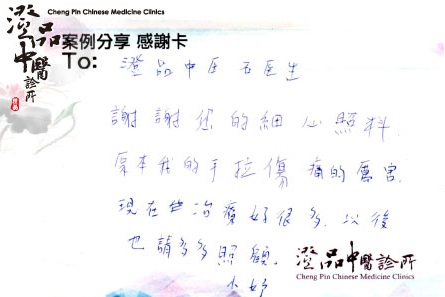 澄品中醫診所
Cheng Pin Chinese Medicine Clinics
案例分享 感謝卡
To: 澄品中医 石医生
謝謝您的細心照料.
原本我的手拉傷 痛的厲害.
現在也治療好很多. 以後
也請多多照顧.
小妤
澄品中醫診所
Cheng Pin Chinese Medicine Clinics